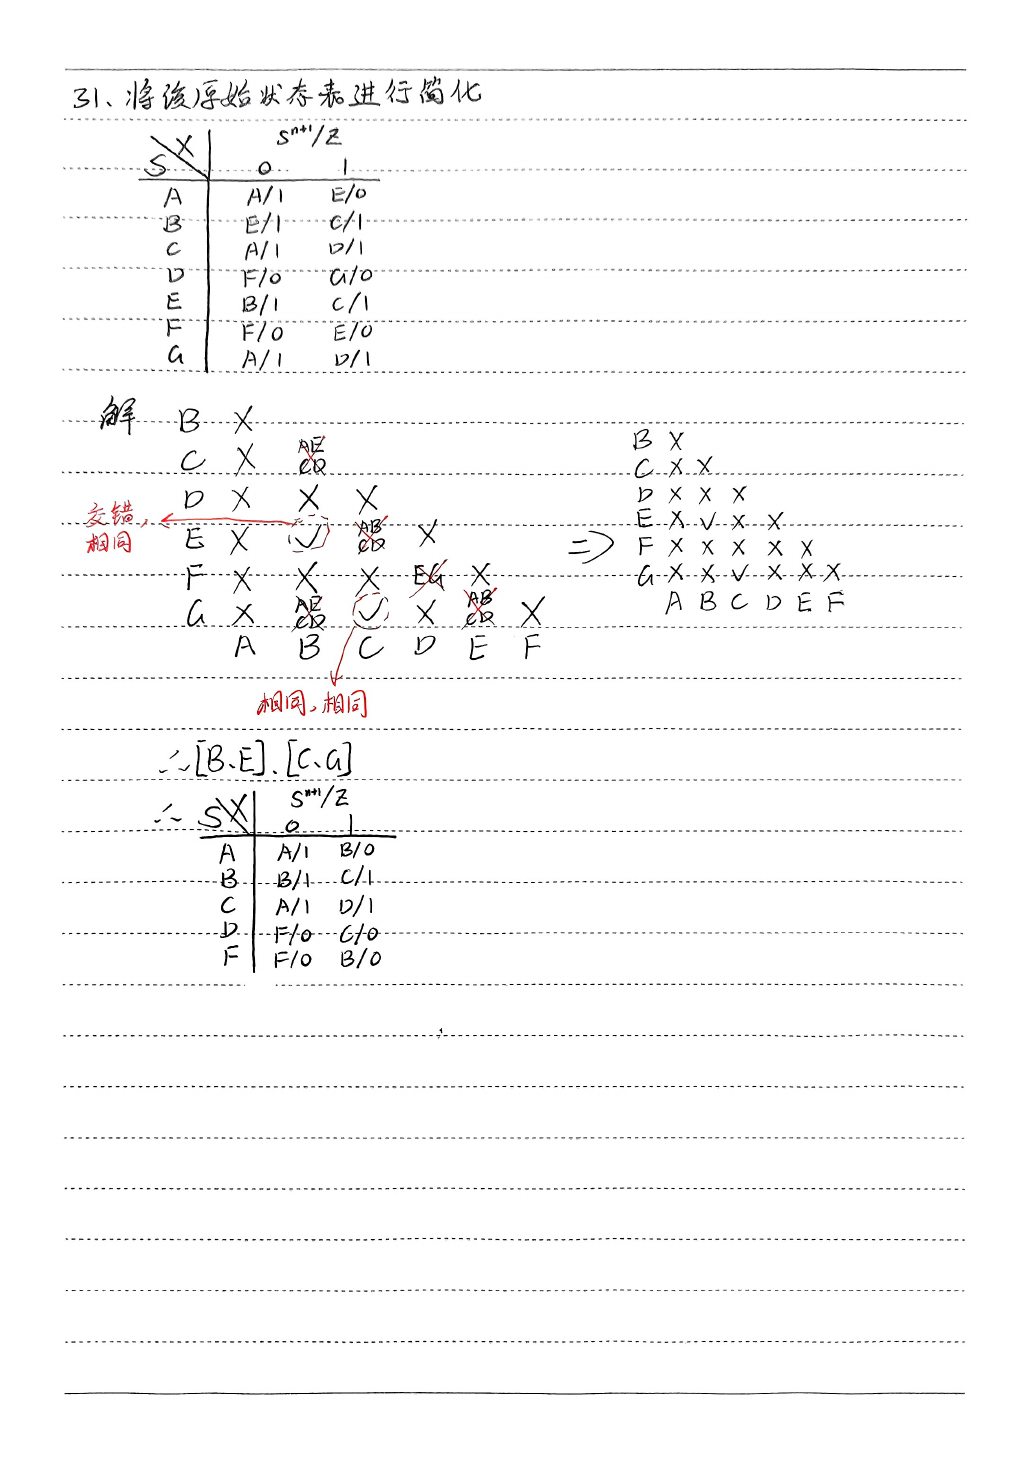 31、将该原始状态表进行简化
Sⁿ⁺¹/Z
S X 0 1
A A/1 E/0
B E/1 C/1
C A/1 D/1
D F/0 G/0
E B/1 C/1
F F/0 E/0
G A/1 D/1
解 B X
C X AE CD
D X X X
交错, 相同
E X ✓ AB CD X
F X X X EG X
G X AE CD ✓ X AB CD X
A B C D E F
相同,相同
⇒
B X
C X X
D X X X
E X ✓ X X
F X X X X X
G X X ✓ X X X
A B C D E F
∴[B、E]、[C、G]
∴ Sⁿ⁺¹/Z
S X 0 1
A A/1 B/0
B B/1 C/1
C A/1 D/1
D F/0 C/0
F F/0 B/0